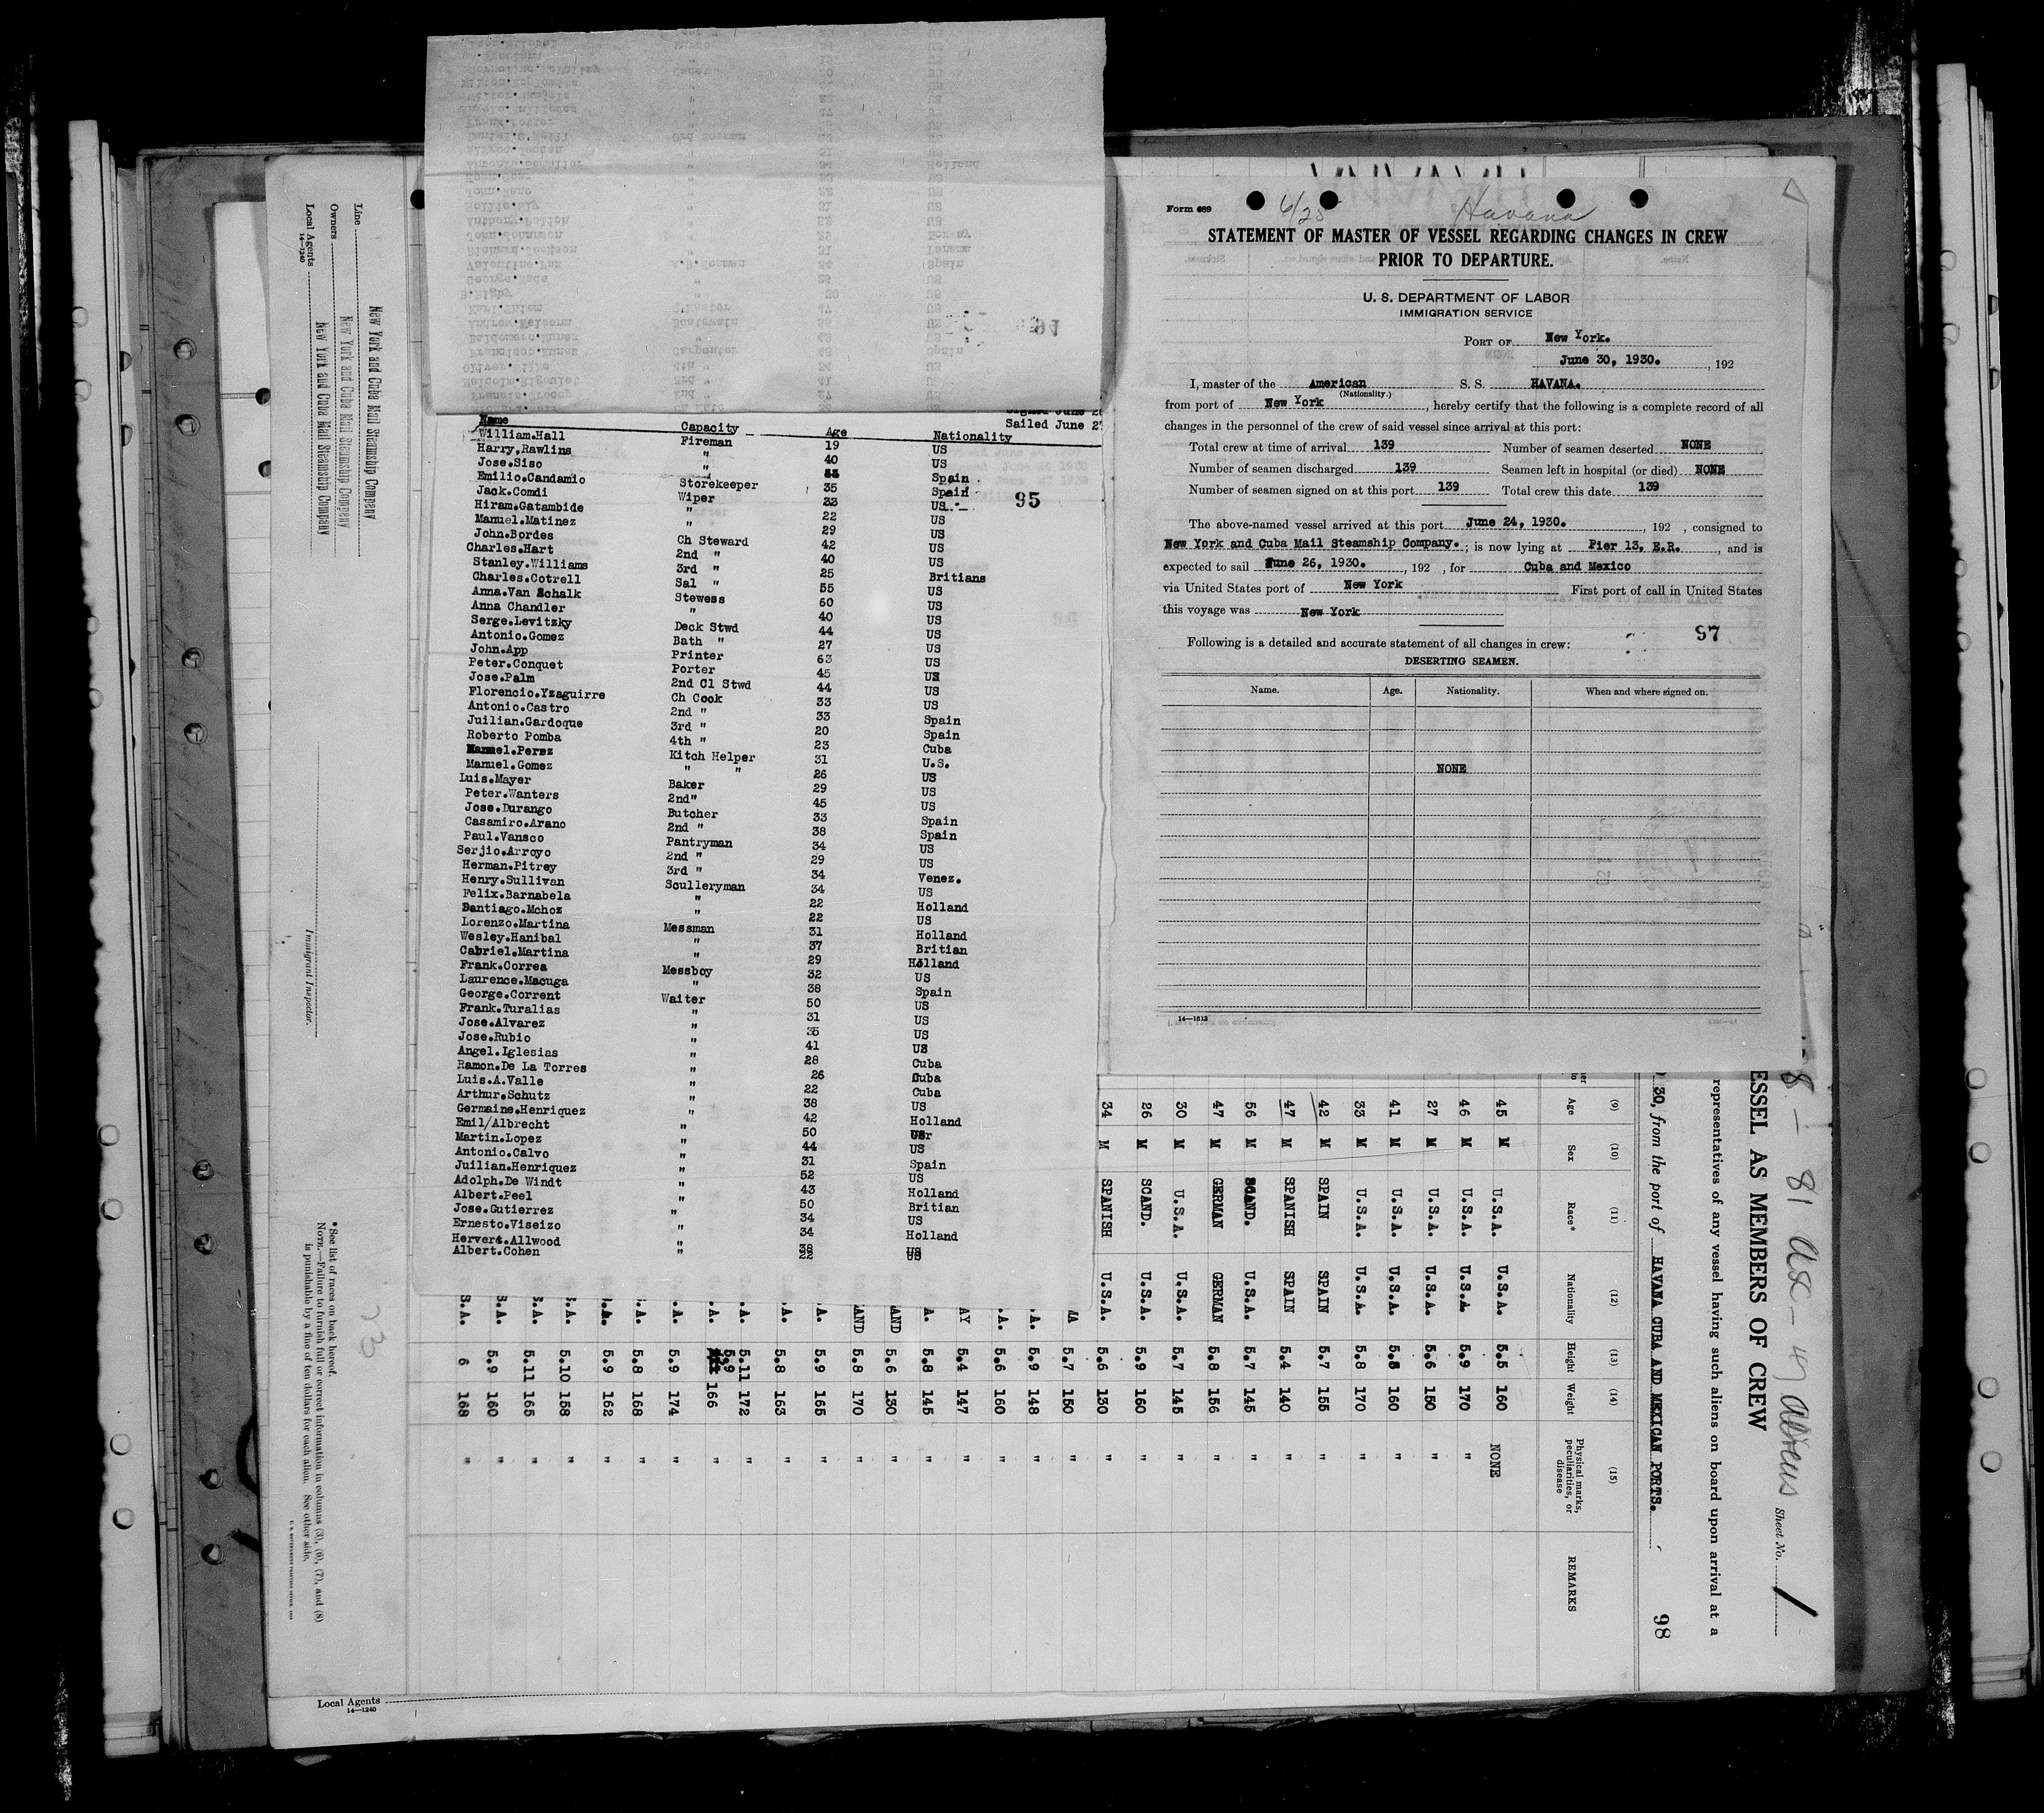 Signed June 2
Sailed June 2
Name Capacity Age Nationality
William.Hall Fireman 19 US
Harry,Rawlins " 40 US
Jose.Siso " Spain
Emilio.Candamio Storekeeper 35 Spain
Jack.Comdi Wiper 23 US
95
Hiram.Gatambide " 22 US
Manuel.Matinez " 29 US
John.Bordes Ch Steward 42 US
Charles.Hart 2nd " 40 US
Stanley.Williams 3rd " 25 Britians
Charles.Cotrell Sal " 55 US
Anna.Van Schalk Stewess 60 US
Anna Chandler " 40 US
Serge.Levitzky Deck Stwd 44 US
Antonio.Gomez Bath " 27 US
John.App Printer 63 US
Peter.Conquet Porter 45 US
Jose.Palm 2nd Cl Stwd 44 US
Florencio.Yzaguirre Ch Cook 33 US
Antonio.Castro 2nd " 33 Spain
Juilian.Gardoque 3rd " 20 Spain
Roberto Pomba 4th " 23 Cuba
Manuel.Perez Kitch Helper 31 U.S.
Manuel.Gomez " " 26 US
Luis.Mayer Baker 29 US
Peter.Wanters 2nd" 45 US
Jose.Durango Butcher 33 Spain
Casamiro.Arano 2nd " 38 Spain
Paul.Vansco Pantryman 34 US
Serjio.Arroyo 2nd " 29 US
Herman.Pitrey 3rd " 34 Venez.
Henry.Sullivan Sculleryman 34 US
Felix.Barnabela " 22 Holland
Santiago.Mchoz " 22 US
Lorenzo.Martina Messman 31 Holland
Wesley.Hanibal " 37 Britian
Gabriel.Martina " 29 Holland
Frank.Correa Messboy 32 US
Laurence.Macuga " 38 Spain
George.Corrent Waiter 50 US
Frank.Turalias " 31 US
Jose.Alvarez " 35 US
Jose.Rubio " 41 US
Angel.Iglesias " 28 Cuba
Ramon.De La Torres " 26 Cuba
Luis.A.Valle " 22 Cuba
Arthur.Schutz " 38 US
Germaine.Henriquez " 42 Holland
Emil/Albrecht " 50 Ger
Martin.Lopez " 44 US
Antonio.Calvo " 31 Spain
Juilian.Henriquez " 52 US
Adolph.De Windt " 43 Holland
Albert.Peel " 50 Britian
Jose.Gutierrez " 34 US
Ernesto.Viseizo " 34 Holland
Hervert.Allwood " 38 US
Albert.Cohen " 22 US
Form 689
6/25 Havana
STATEMENT OF MASTER OF VESSEL REGARDING CHANGES IN CREW
PRIOR TO DEPARTURE.
U. S. DEPARTMENT OF LABOR
IMMIGRATION SERVICE
PORT OF New York.
June 30, 1930. , 192
I, master of the American S. S. HAVANA.
(Nationality.)
from port of New York , hereby certify that the following is a complete record of all
changes in the personnel of the crew of said vessel since arrival at this port:
Total crew at time of arrival 139 Number of seamen deserted NONE
Number of seamen discharged 139 Seamen left in hospital (or died) NONE
Number of seamen signed on at this port 139 Total crew this date 139
The above-named vessel arrived at this port June 24, 1930. , 192 , consigned to
New York and Cuba Mail Steamship Company. ; is now lying at Pier 13, E.R. , and is
expected to sail June 26, 1930. , 192 , for Cuba and Mexico
via United States port of New York First port of call in United States
this voyage was New York
97
Following is a detailed and accurate statement of all changes in crew:
DESERTING SEAMEN.
Name. Age. Nationality. When and where signed on.
NONE
14—1613
81 USC - 47 aliens
Sheet No. 1
ESSEL AS MEMBERS OF CREW
representatives of any vessel having such aliens on board upon arrival at a
30, from the port of HAVANA CUBA AND MEXICAN PORTS.
98
(9) (10) (11) (12) (13) (14) (15)
Age Sex Race* Nationality Height Weight Physical marks, peculiarities, or disease REMARKS
45 M U.S.A. U.S.A. 5.5 160 NONE
46 M U.S.A. U.S.A. 5.9 170 "
27 M U.S.A. U.S.A. 5.6 150 "
41 M U.S.A. U.S.A. 5.8 160 "
33 M U.S.A. U.S.A. 5.8 170 "
42 M SPAIN SPAIN 5.7 155 "
47 M SPANISH SPAIN 5.4 140 "
56 M SCAND. U.S.A. 5.7 145 "
47 M GERMAN GERMAN 5.8 156 "
30 M U.S.A. U.S.A. 5.7 145 "
26 M SCAND. U.S.A. 5.9 160 "
34 M SPANISH U.S.A. 5.6 130 "
MA 5.7 150 "
.A. 5.9 148 "
.A. 5.6 160 "
AY 5.4 147 "
A. 5.8 145 "
AND 5.6 130 "
AND 5.8 170 "
.A. 5.9 165 "
.A. 5.8 163 "
.A. 5.11 172 "
.A. 5.9 166 "
.A. 5.9 174 "
.A. 5.8 168 "
.A. 5.9 162 "
S.A. 5.10 158 "
S.A. 5.11 165 "
S.A. 5.9 160 "
S.A. 6 168 "
Line New York and Cuba Mail Steamship Company
Owners New York and Cuba Mail Steamship Company
Local Agents New York and Cuba Mail Steamship Company
14—1240
Immigrant Inspector.
*See list of races on back hereof.
NOTE.—Failure to furnish full or correct information in columns (3), (6), (7), and (8)
is punishable by a fine of ten dollars for each alien. See other side.
U. S. GOVERNMENT PRINTING OFFICE
Local Agents
14—1240